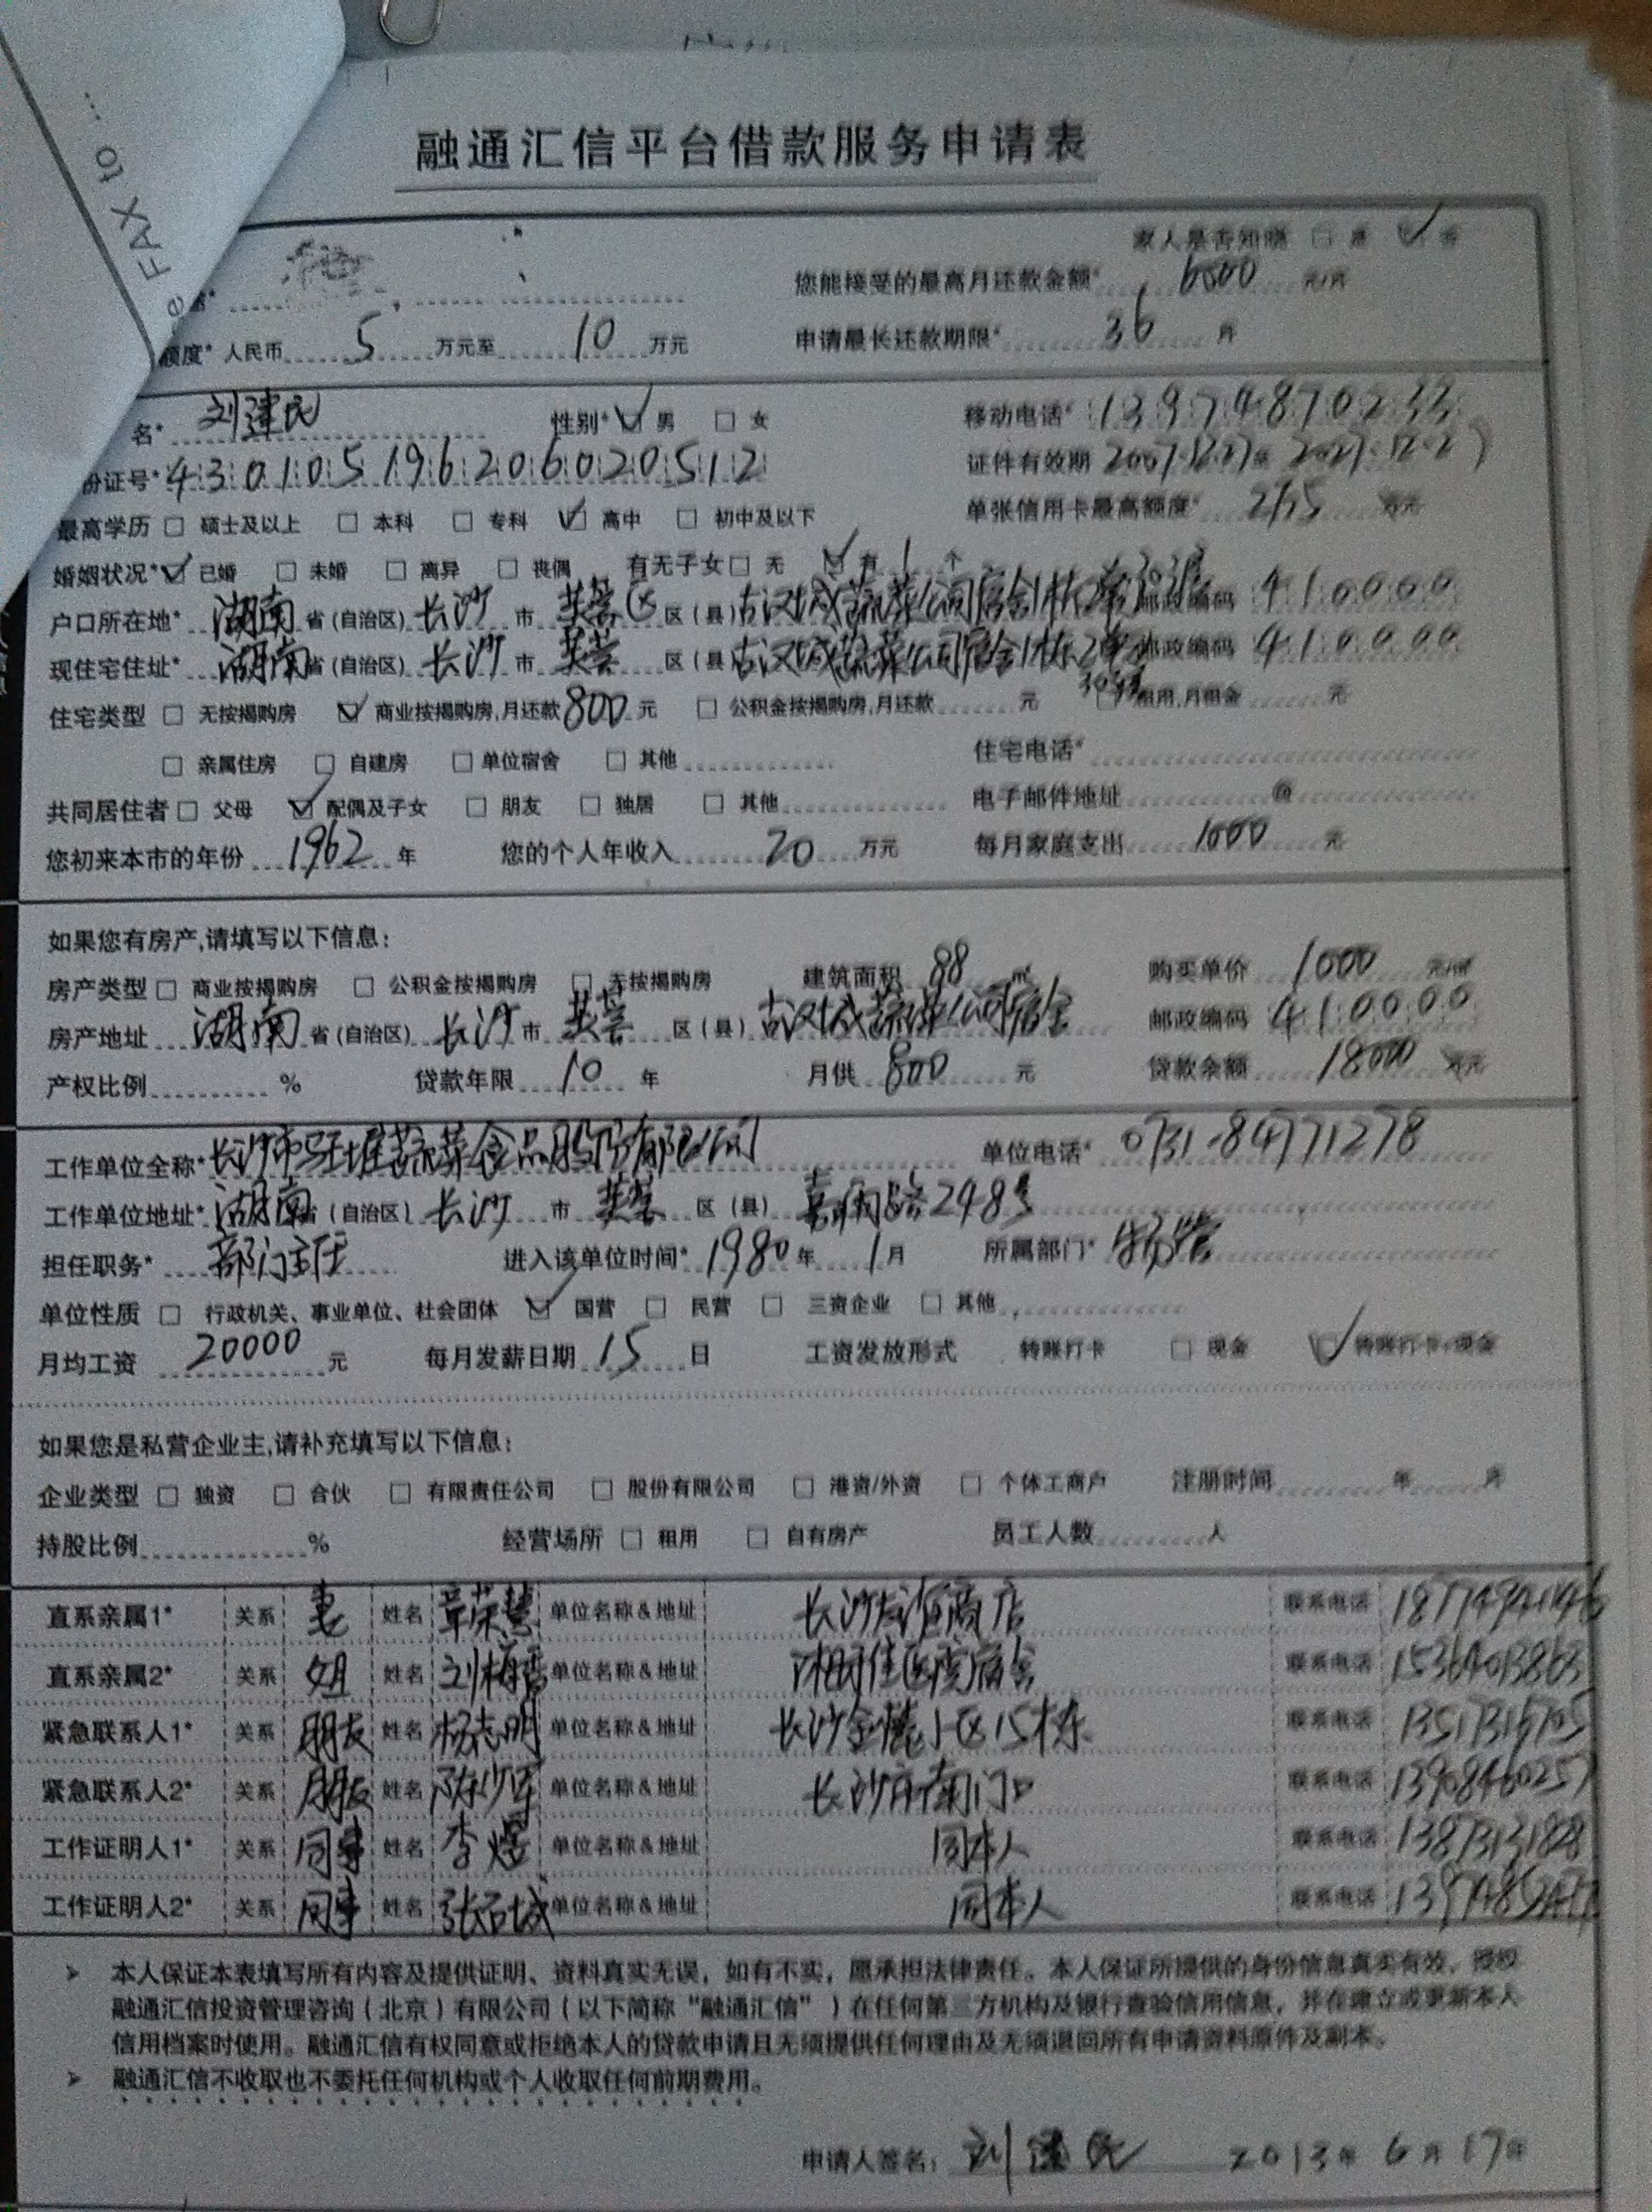 FAX to ...
融通汇信平台借款服务申请表
家人是否知晓 □ 是 ☑ 否
您能接受的最高月还款金额* 6500 元/月
额度* 人民币 5 万元至 10 万元 申请最长还款期限* 36 月
名* 刘建民 性别* ☑ 男 □ 女 移动电话* 13974870233
份证号* 430105196206020512 证件有效期 2007.12.27至 2027.12.27
最高学历 □ 硕士及以上 □ 本科 □ 专科 ☑ 高中 □ 初中及以下 单张信用卡最高额度* 万元
婚姻状况* ☑ 已婚 □ 未婚 □ 离异 □ 丧偶 有无子女 □ 无 ☑ 有 1 个
户口所在地* 湖南 省(自治区) 长沙 市 芙蓉区 区(县) 古汉城蔬菜公司宿舍1栋 邮政编码 410000
现住宅住址* 湖南 省(自治区) 长沙 市 芙蓉 区(县) 古汉城蔬菜公司宿舍1栋2单 邮政编码 410000
住宅类型 □ 无按揭购房 ☑ 商业按揭购房,月还款 800 元 □ 公积金按揭购房,月还款 元 □ 租用,月租金 元
□ 亲属住房 □ 自建房 □ 单位宿舍 □ 其他 住宅电话*
共同居住者 □ 父母 ☑ 配偶及子女 □ 朋友 □ 独居 □ 其他 电子邮件地址 @
您初来本市的年份 1962 年 您的个人年收入 20 万元 每月家庭支出 1000 元
如果您有房产,请填写以下信息:
房产类型 □ 商业按揭购房 □ 公积金按揭购房 □ 无按揭购房 建筑面积 88 ㎡ 购买单价 1000 元/㎡
房产地址 湖南 省(自治区) 长沙 市 芙蓉 区(县) 古汉城蔬菜公司宿舍 邮政编码 410000
产权比例 % 贷款年限 10 年 月供 800 元 贷款余额 18000 万元
工作单位全称* 长沙市马王堆蔬菜食品股份有限公司 单位电话* 0731-84771278
工作单位地址* 湖南 省(自治区) 长沙 市 芙蓉 区(县) 嘉雨路248号
担任职务* 部门主任 进入该单位时间* 1980 年 1 月 所属部门*
单位性质 □ 行政机关、事业单位、社会团体 ☑ 国营 □ 民营 □ 三资企业 □ 其他
月均工资 20000 元 每月发薪日期 15 日 工资发放形式 转账打卡 □ 现金 ☑ 转账打卡+现金
如果您是私营企业主,请补充填写以下信息:
企业类型 □ 独资 □ 合伙 □ 有限责任公司 □ 股份有限公司 □ 港资/外资 □ 个体工商户 注册时间 年 月
持股比例 % 经营场所 □ 租用 □ 自有房产 员工人数 人
直系亲属1* 关系 妻 姓名 章荣慧 单位名称&地址 联系电话
直系亲属2* 关系 姐 姓名 单位名称&地址 联系电话 15364013863
紧急联系人1* 关系 朋友 姓名 杨志明 单位名称&地址 联系电话
紧急联系人2* 关系 朋友 姓名 陈少军 单位名称&地址 长沙市南门口 联系电话 13908460257
工作证明人1* 关系 同事 姓名 李煜 单位名称&地址 同本人 联系电话
工作证明人2* 关系 同事 姓名 张石城 单位名称&地址 同本人 联系电话
➢ 本人保证本表填写所有内容及提供证明、资料真实无误，如有不实，愿承担法律责任。本人保证所提供的身份信息真实有效，授权
融通汇信投资管理咨询（北京）有限公司（以下简称“融通汇信”）在任何第三方机构及银行查验信用信息，并在建立或更新本人
信用档案时使用。融通汇信有权同意或拒绝本人的贷款申请且无须提供任何理由及无须退回所有申请资料原件及副本。
➢ 融通汇信不收取也不委托任何机构或个人收取任何前期费用。
申请人签名: 刘建民 2013年 6月 17日